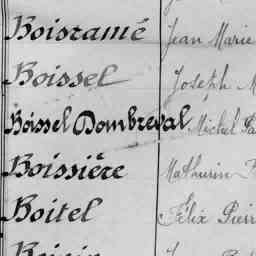 Boisramé Jean Marie
Boissel Joseph
Boissel Dombreval Michel
Boissière Mathurin
Boitel Félix Pierr